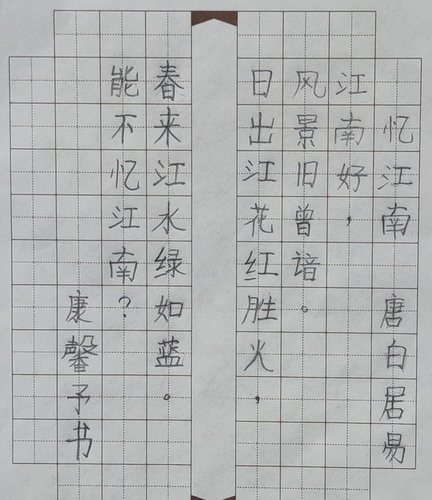 忆江南 唐 白居易
江南好，
风景旧曾谙。
日出江花红胜火，
春来江水绿如蓝。
能不忆江南？
康馨予书